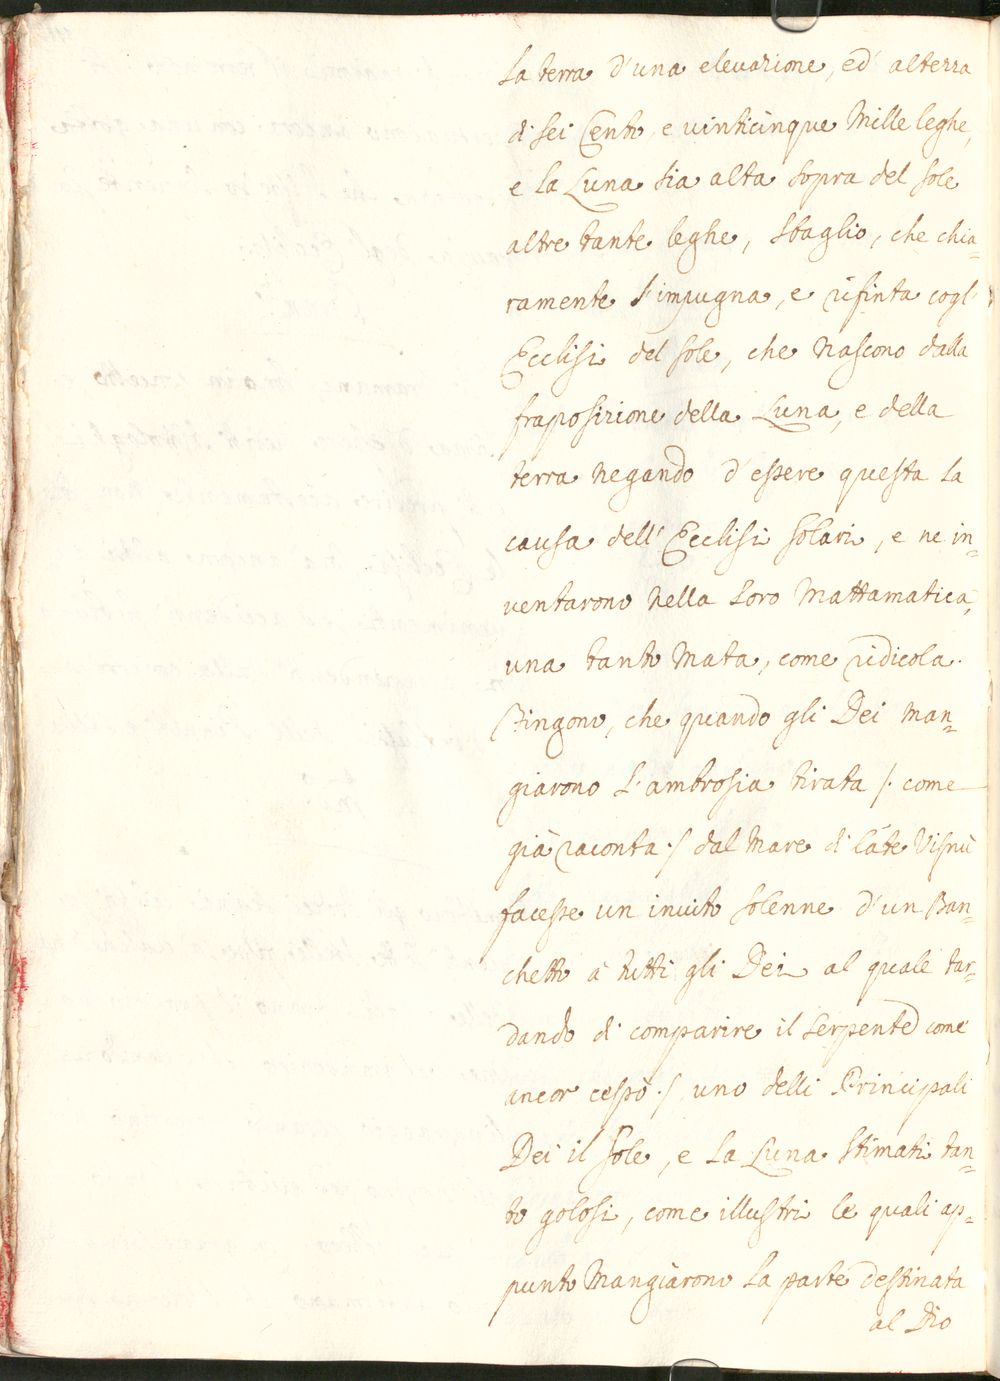 la terra d'una elevazione, ed' alterza
di sei Cento, e vinticinque Mille leghe,
e la Luna sia alta sopra del sole
altre tante leghe, sbaglio, che chia=
ramente s'impugna, e rifiuta cogl'
Ecclisi del sole, che nascono dalla
fraposizione della Luna, e della
terra negando d'essere questa la
causa dell' Ecclisi solari, e ne in=
ventarono nella loro Mattamatica,
una tanto mata, come ridicola.
Fingono, che quando gli Dei man=
giarono l'ambrosia tirata /. come
già racconta ./ dal mare di làte Visnù
facesse un invito solenne d'un Ban=
chetto à tutti gli Dei al quale tar=
dando di comparire il serpente come
ancor ./ uno delli Principali
Dei il sole, e la Luna stimati tan=
to golosi, come illustri le quali ap=
punto mangiarono la parte destinata
al Dio